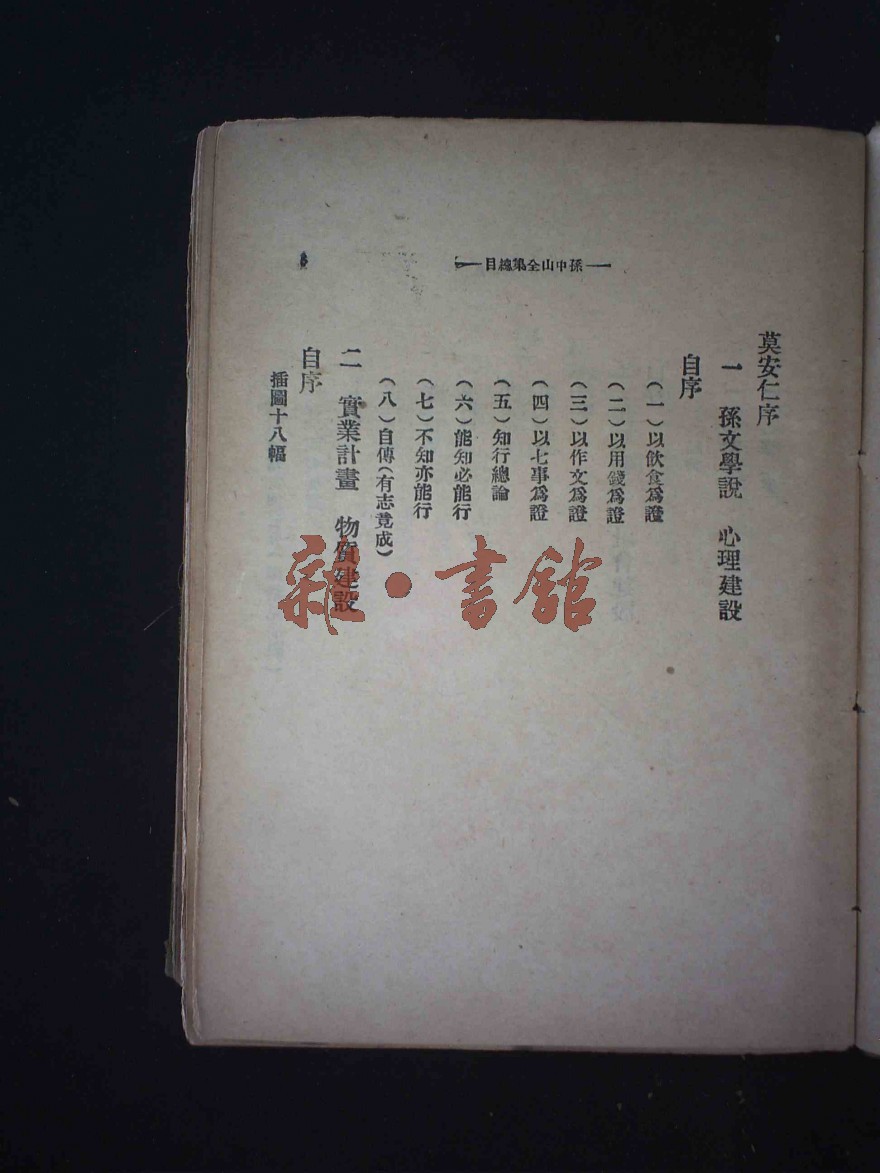 孫中山全集總目
莫安仁序
一 孫文學說 心理建設
自序
(一)以飲食爲證
(二)以用錢爲證
(三)以作文爲證
(四)以七事爲證
(五)知行總論
(六)能知必能行
(七)不知亦能行
(八)自傳(有志竟成)
二 實業計畫 物質建設
自序
插圖十八幅
雜·書館